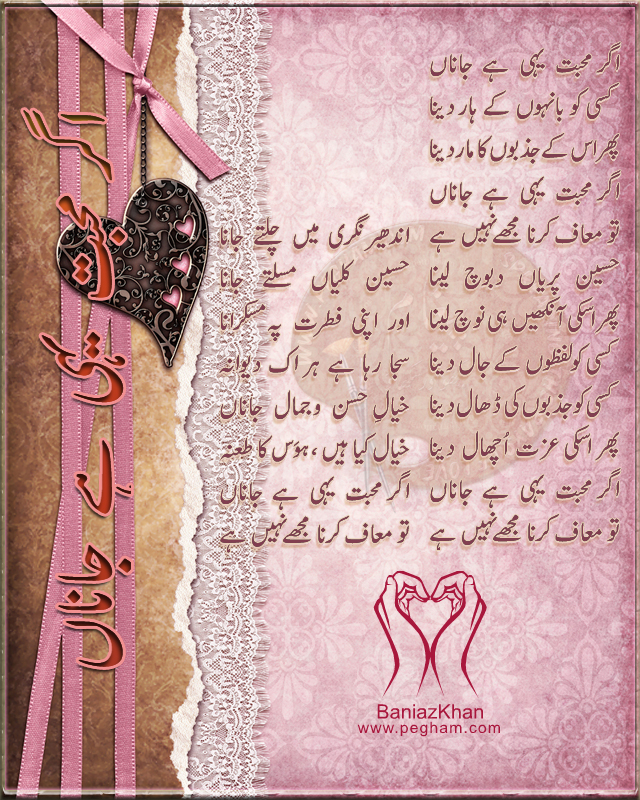 اگر محبت یہی ہے جاناں
اگر محبت یہی ہے جاناں
کسی کو بانہوں کے ہار دینا
پھر اس کے جذبوں کا مار دینا
اگر محبت یہی ہے جاناں
تو معاف کرنا مجھے نہیں ہے
حسین پریاں دبوچ لینا
پھر اسکی آنکھیں ہی نوچ لینا
کسی کو لفظوں کے جال دینا
کسی کو جذبوں کی ڈھال دینا
پھر اسکی عزت اُچھال دینا
اگر محبت یہی ہے جاناں
تو معاف کرنا مجھے نہیں ہے
اندھیر نگری میں چلتے جانا
حسین کلیاں مسلتے جانا
اور اپنی فطرت پہ مسکرانا
سجا رہا ہے ہر اک دیوانہ
خیالِ حسن و جمال جاناں
خیال کیا ہیں ، ہوَس کا طعنہ
اگر محبت یہی ہے جاناں
تو معاف کرنا مجھے نہیں ہے
BaniazKhan
www.pegham.com